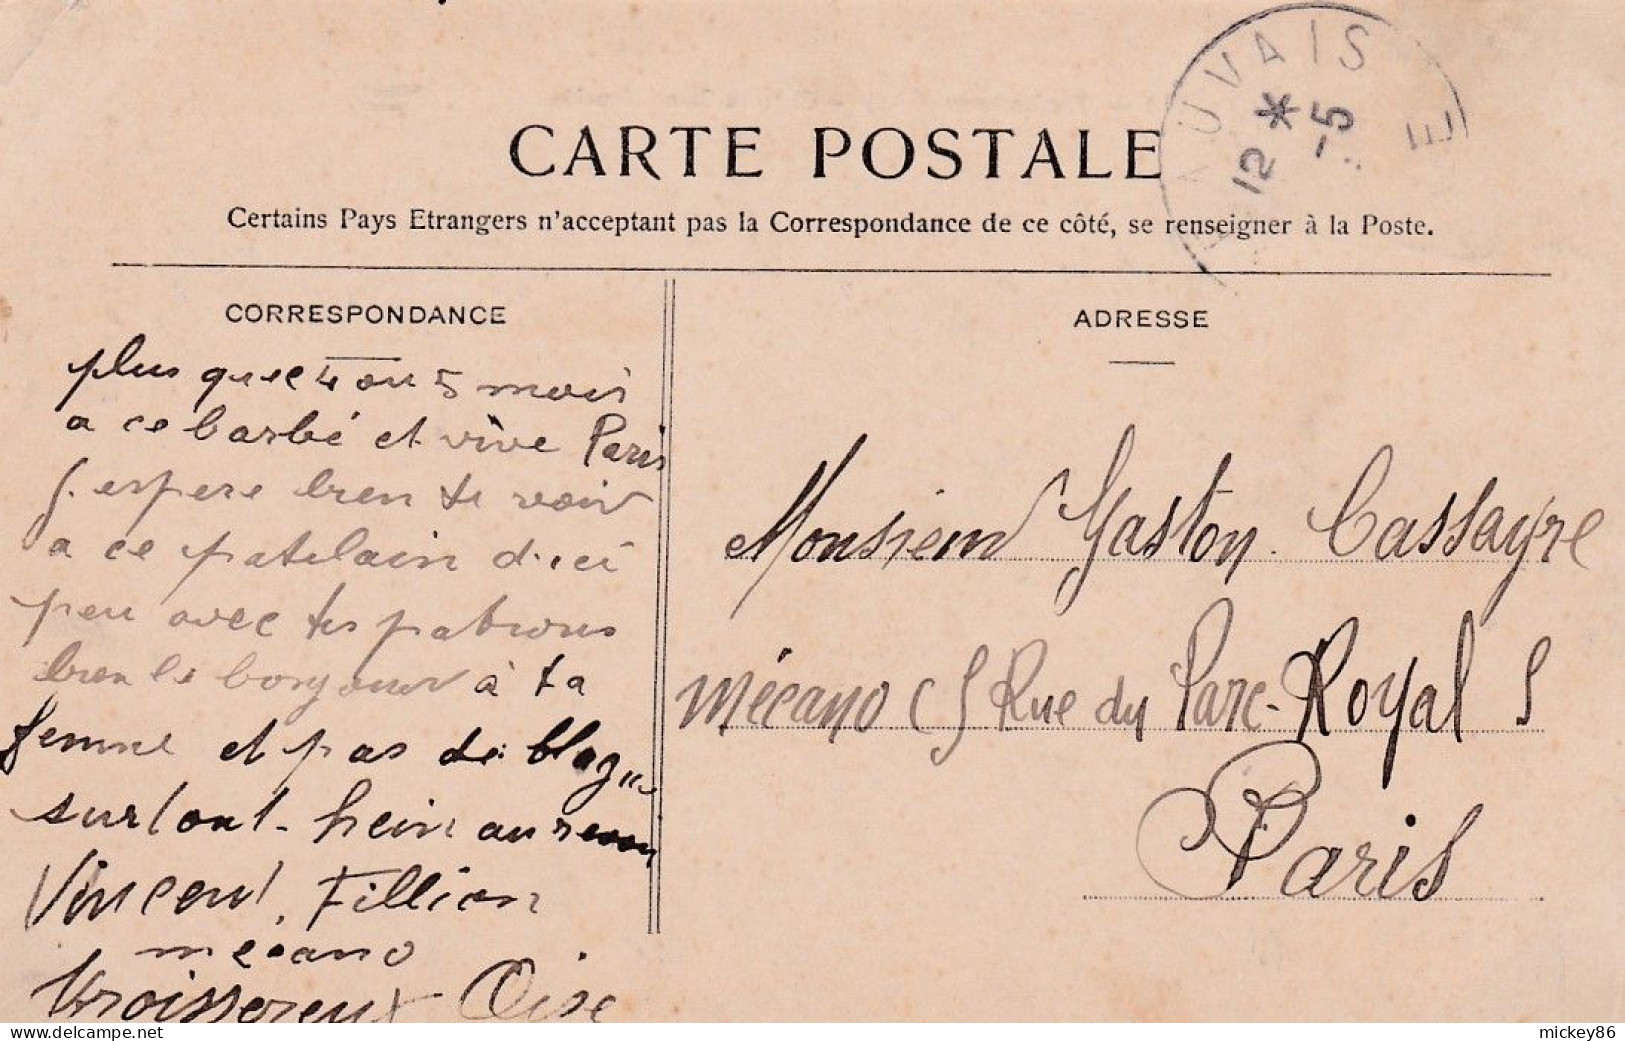 CARTE POSTALE
Certains Pays Etrangers n'acceptant pas la Correspondance de ce côté, se renseigner à la Poste.
AUVAIS
12 * -5
E
CORRESPONDANCE
plus que 4 ou 5 mois
a ce barbé et vive Paris
j espere bien te voir
a ce patelain d ici
peu avec tes patrons
bien le bonjour à ta
femme et pas de blague
surtout hein au
Vincent. Fillion
mécano
Troissereux Oise
ADRESSE
Monsieur Gaston Cassayre
mécano 5 Rue du Parc-Royal 5
Paris
www.delcampe.net
mickey86